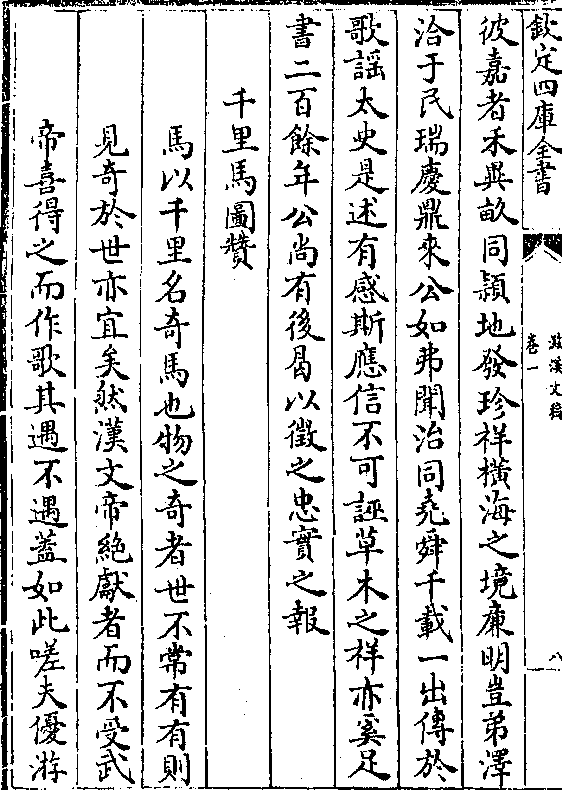 欽定四庫全書
卷一
八
彼嘉者禾異畝同頴地發珍祥橫海之境亷明豈弟澤
洽于民瑞慶鼎來公如弗聞治同堯舜千載一出傳於
歌謡太史是述有感斯應信不可誣草木之祥亦奚足
書二百餘年公尚有後曷以徵之忠實之報
千里馬圖贊
馬以千里名奇馬也物之奇者世不常有有則
見奇於世亦宜矣然漢文帝絶獻者而不受武
帝喜得之而作歌其遇不遇蓋如此嗟夫優游